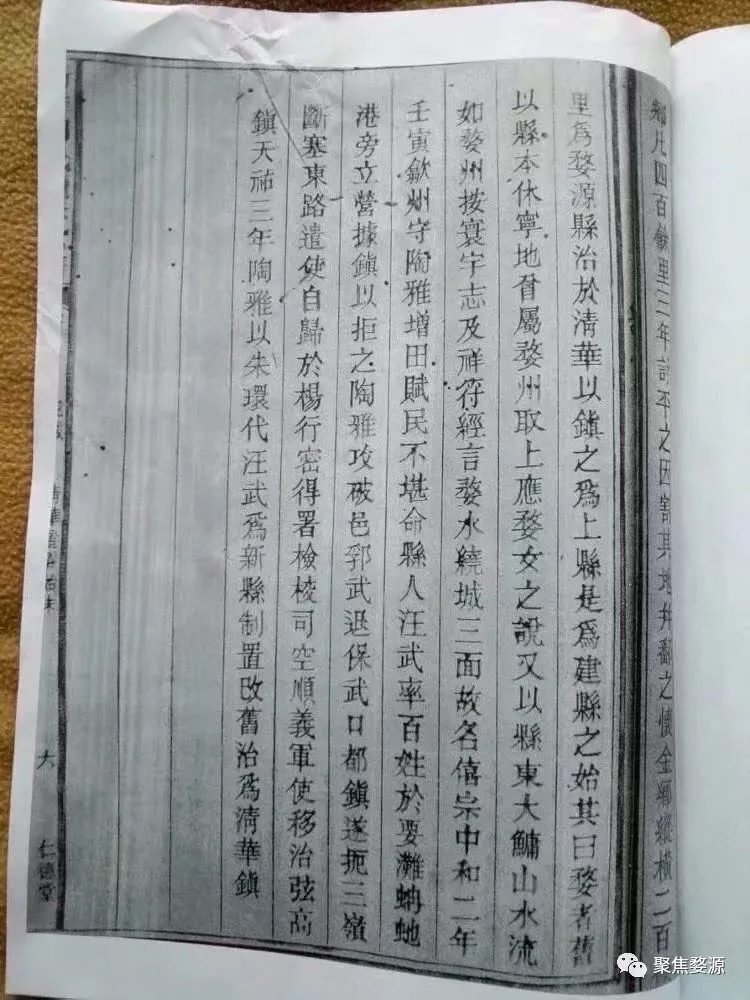 鄉凡四百餘里三年討平之因割其地并鄱之懷金鄉縱橫二百
里爲婺源縣治於清華以鎮之爲上縣是爲建縣之始其曰婺者舊
以縣本休寧地曾屬婺州取上應婺女之說又以縣東大鏞山水流
如婺州按寰宇志及祥符經言婺水繞城三面故名僖宗中和二年
壬寅歙州守陶雅增田賦民不堪命縣人汪武率百姓於要灘蚺虵
港旁立營據鎮以拒之陶雅攻破邑郛武退保武口都鎮遂扼三嶺
斷塞東路遣使自歸於楊行密得署檢校司空順義軍使移治弦高
鎮天祐三年陶雅以朱環代汪武爲新縣制置改舊治爲清華鎮
清華
六
仁德堂
聚焦婺源